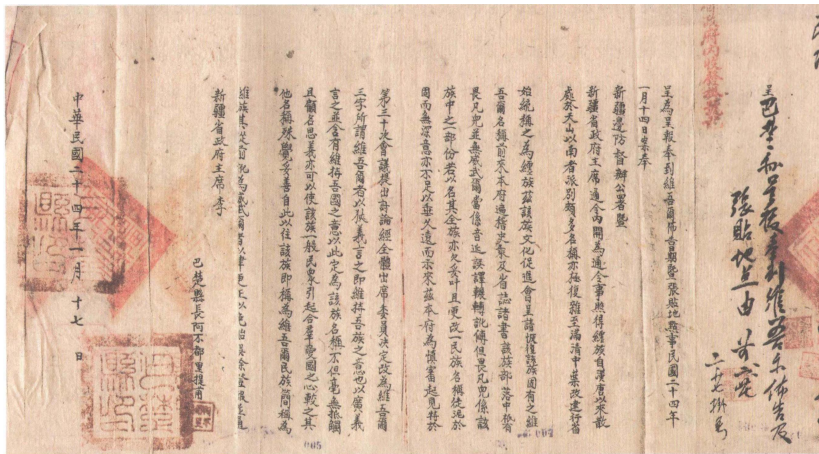 呈巴楚和呈报奉到維吾尔佈告及
張貼地点由
呈為呈報奉到維吾爾佈告日期暨張貼地點事民國二十四年
一月十四日案奉
新疆邊防督辦公署暨
新疆省政府主席通令內開為通令事照得纏族自漢唐以來散
處於天山以南者派別頗多名稱亦極復雜至滿清中葉改建行省
始統稱之為纏族茲該族文化促進會呈請恢復該族固有之維
吾爾名稱前來本府遍稽史乘及省誌諸書該族部落中祇有
畏兀兒並無威武爾當係音近誤譯輾轉訛傳但畏兀兒係該
族中之一部份若以名其全族亦欠妥叶且更改一民族名稱徒泥於
固而無深意亦不足以垂久遠而示來茲本府為慎審起見特於
第三十次會議提出討論經全體出席委員決定改為維吾爾
三字所謂維吾爾者以狹義言之即維持吾族之意也以廣義
言之並含有維持吾國之意以此定為該族名稱不但毫無抵觸
且顧名思義亦可以使該族一般民眾引起合羣愛國之心較之其
他名稱殊覺妥善自此以往該族即稱為維吾爾民族簡稱為
維族其從前訛為威武爾者以律更正以免
新疆省政府主席李
巴楚縣長阿不都里提甫
中華民國二十四年一月十七日